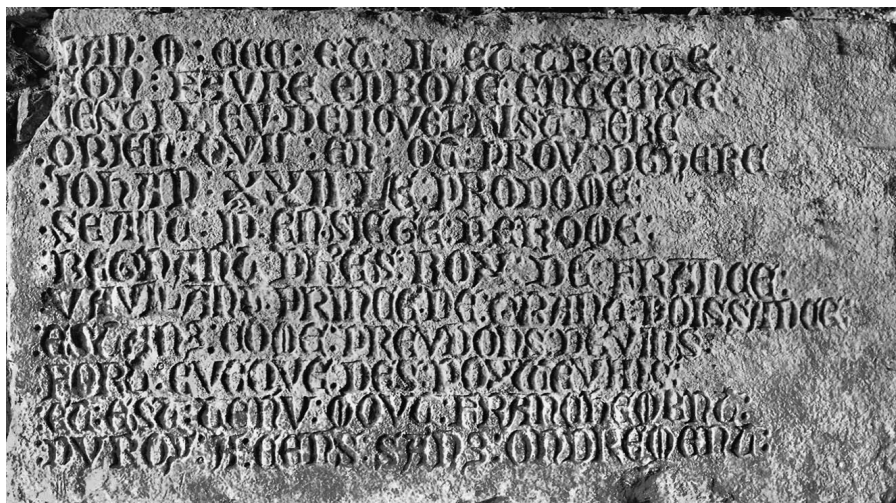 LAN: M : CCC: ET : II : ET TRENTE:
ION : FAVRE EN BONE ENTENTE:
CEST LIEV DE NOVEL FIST FERE
: EN: OT: PROV
: IOHAN: XXII LE PRODOME:
: SEANT: EN SIEGE DE ROME:
: REGNANT: ROY: DE FRANCE:
VAVLANT PRINCE DE GRANT POISSANCE:
: ESTANZ: COME: PREVDONS DEVINS:
FORT: EVEQVE: DES POYTEVINS:
ET: EST: TENV: MOVT FRANCHEMENT:
DV ROY: A: GENS: SANZ: ONDREMENT: